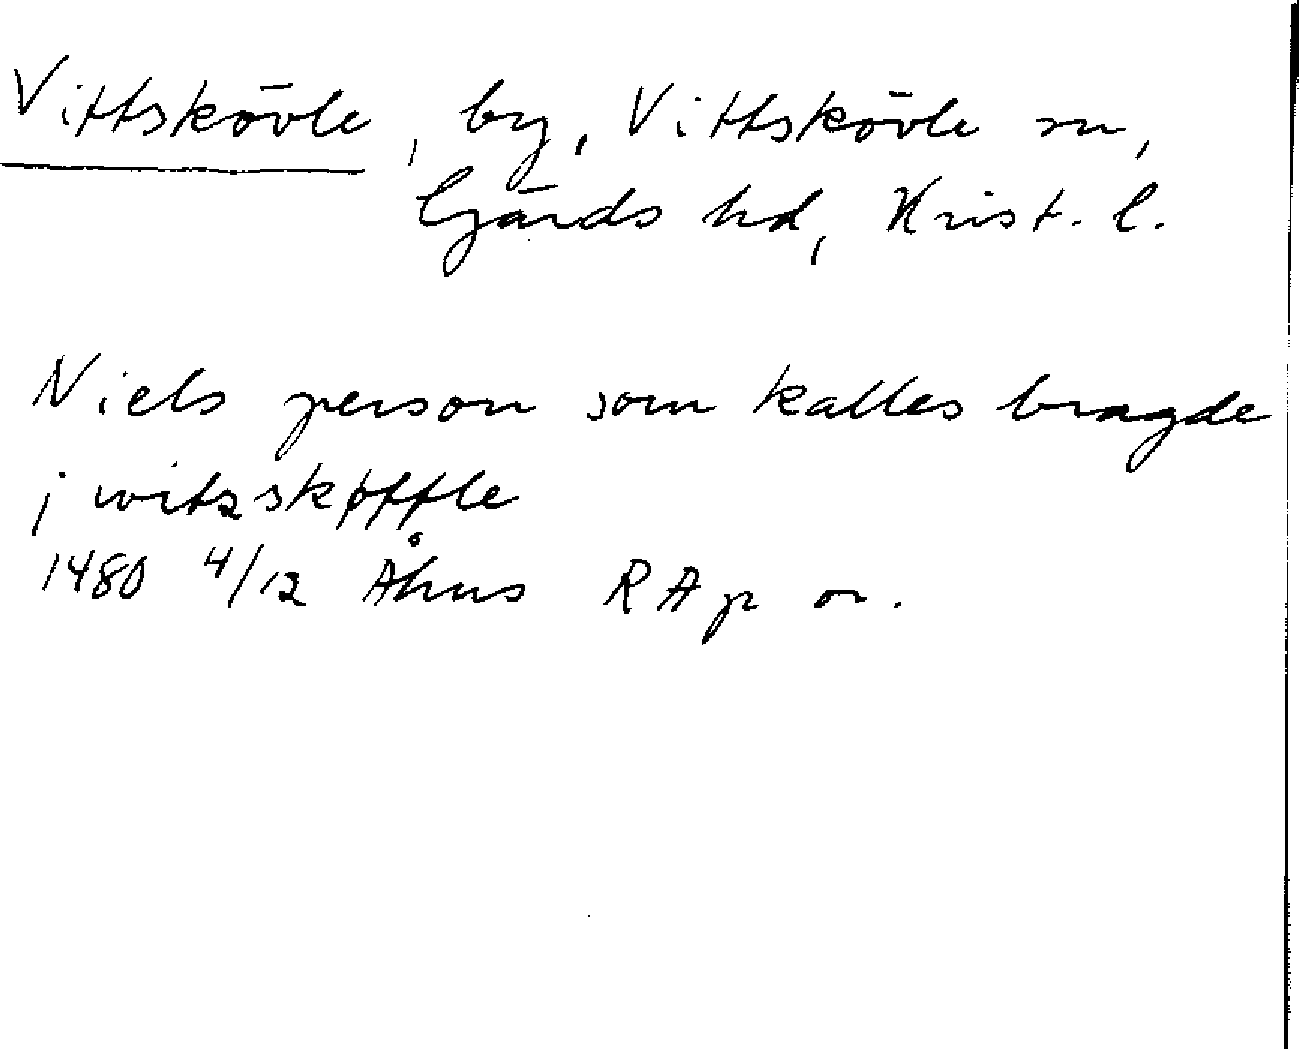 Vittskövle, by, Vittskövle sn,
Gärds hd, Krist. l.
Niels person som kalles bragde
j witzskøffle
1480 4/12 Åhus RAp or.